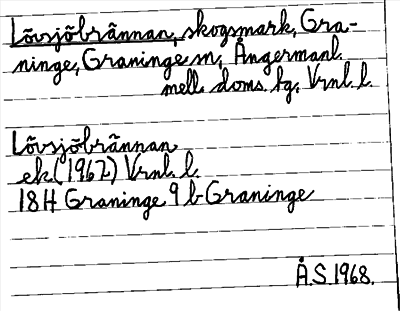 Lövsjöbrännan, skogsmark, Gra-
ninge, Graninge sn, Ångermanl.
mell. doms. hg, Vrnl. l.
Lövsjöbrännan
ek (1967) Vrnl. l.
18H Graninge 9 b Graninge
Å.S. 1968.